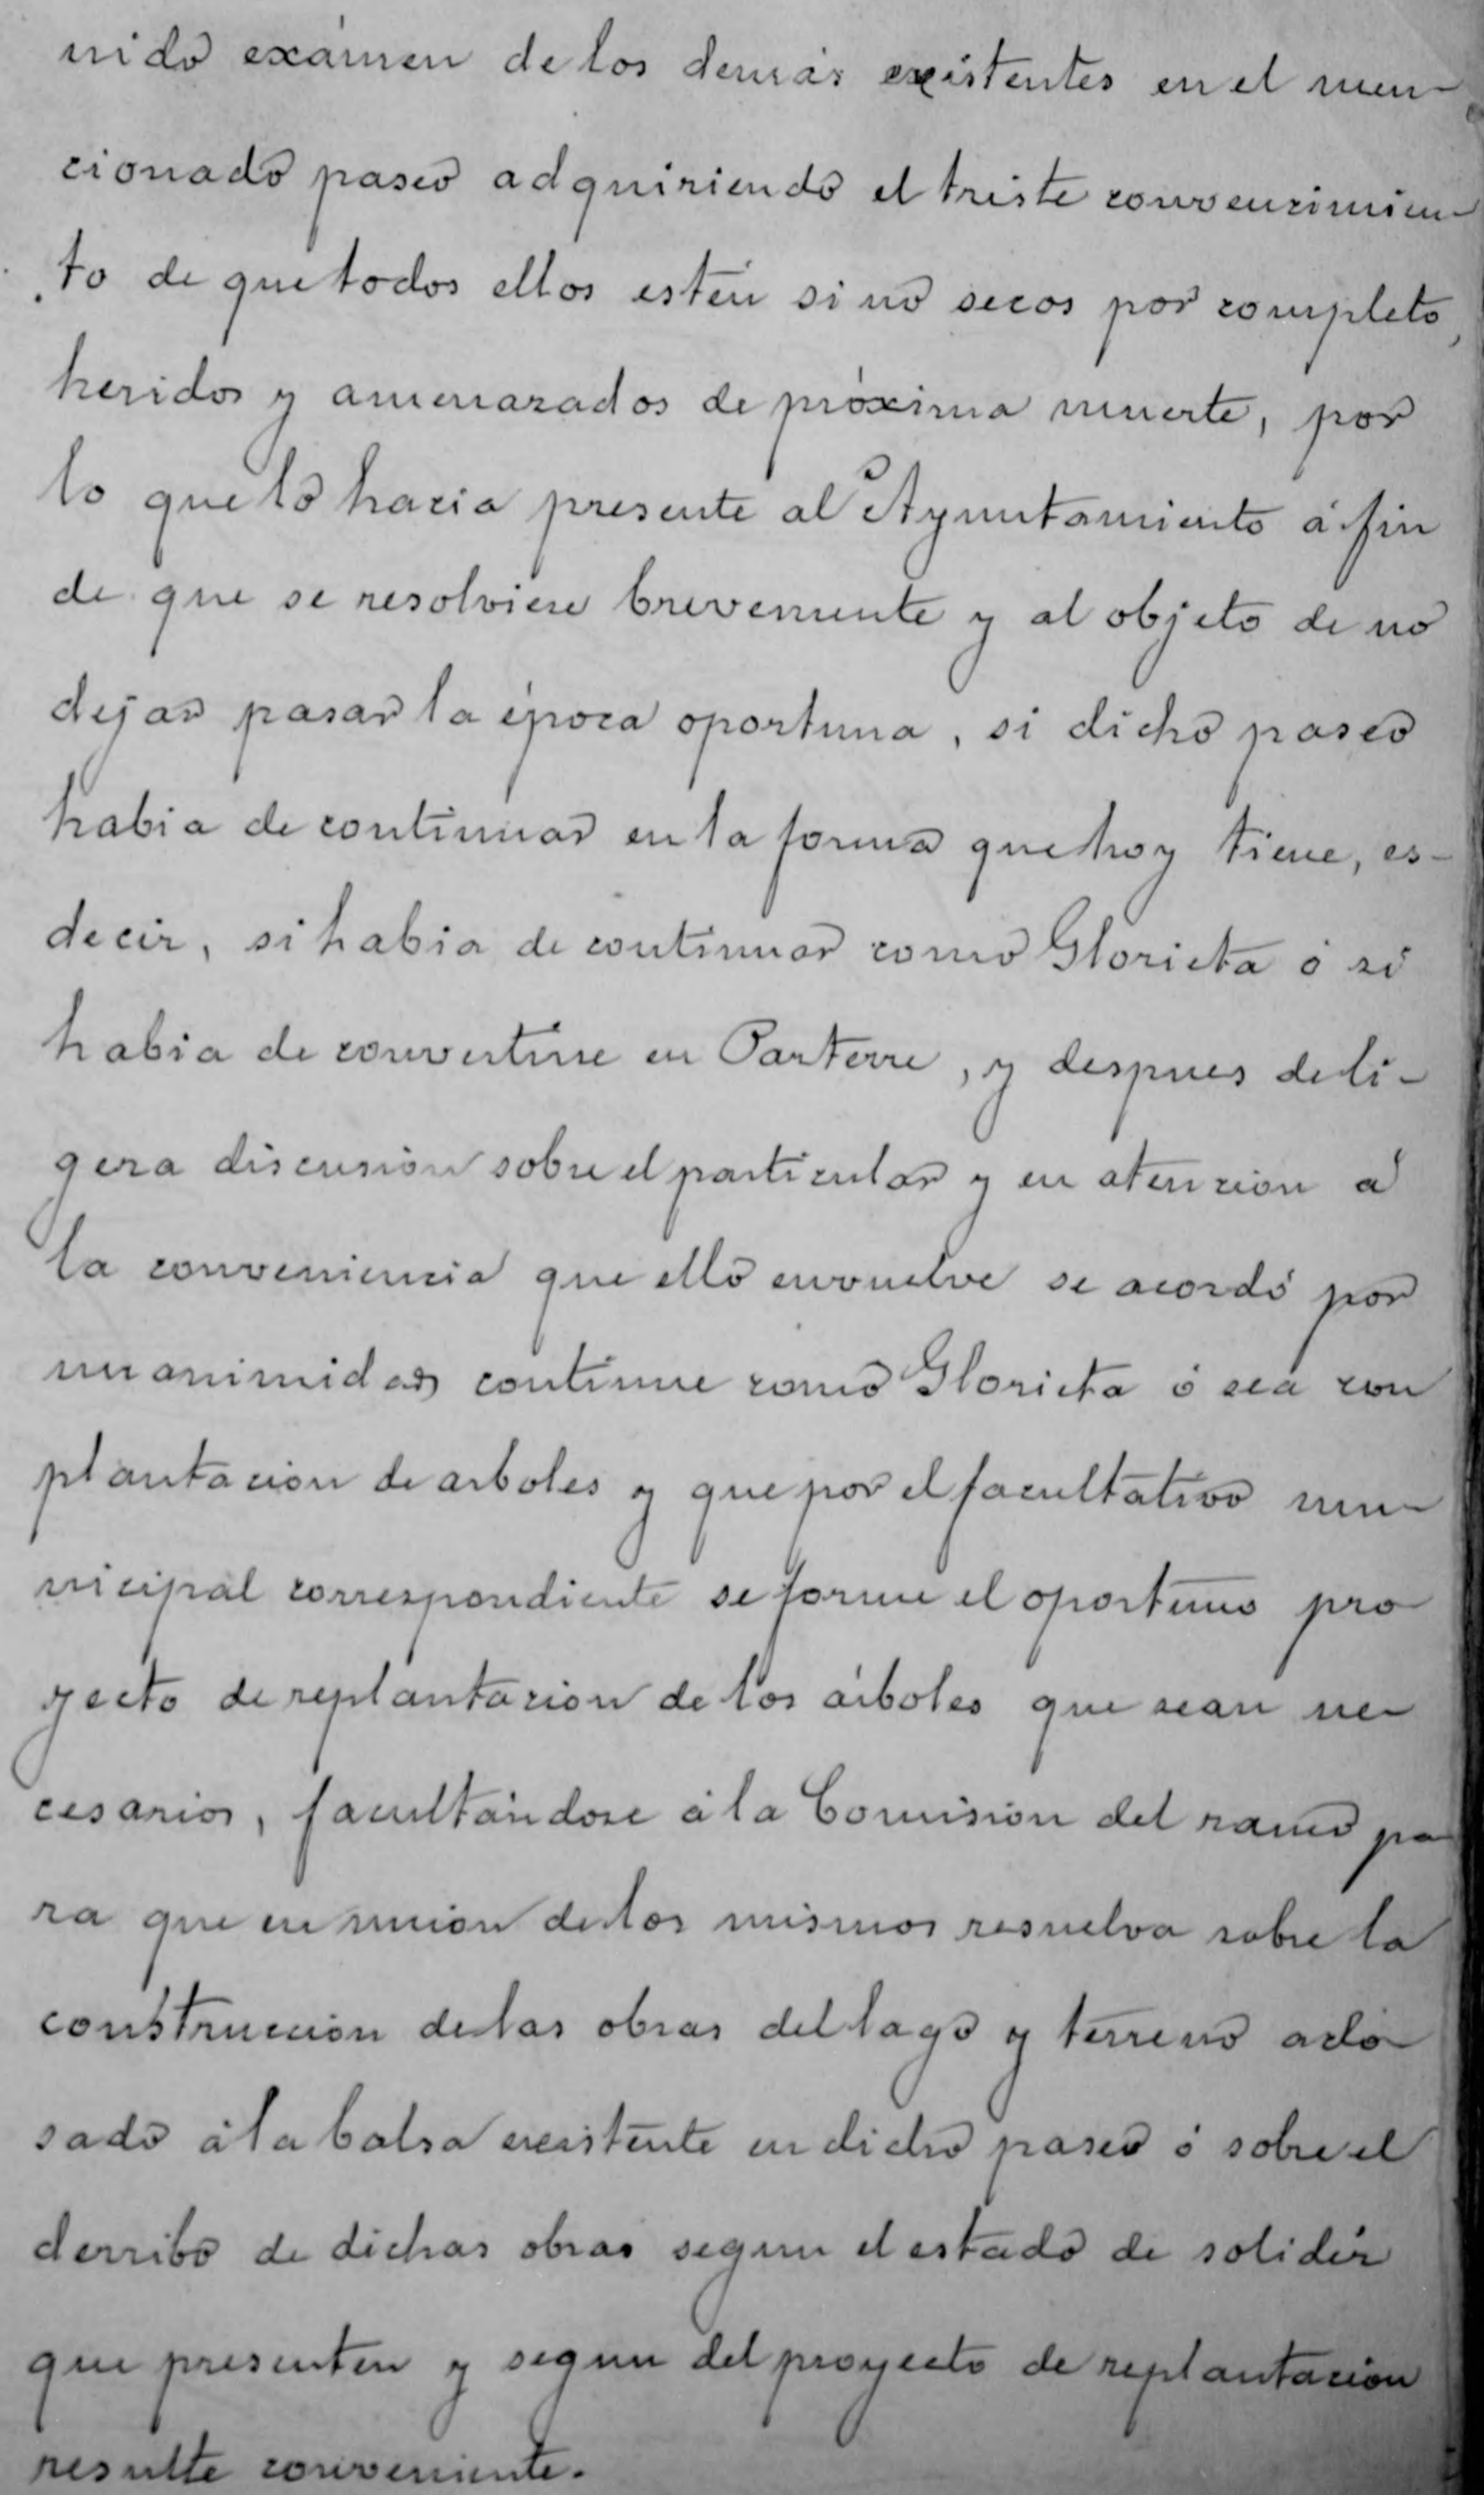 nido exámen de los demás existentes en el men-
cionado paseo adquiriendo el triste convencimien-
to de que todos ellos estén si no secos por completo,
heridos y amenazados de próxima muerte, por
lo que lo hacia presente al Ayuntamiento á fin
de que se resolviese brevemente y al objeto de no
dejar pasar la época oportuna, si dicho paseo
habia de continuar en la forma que hoy tiene, es-
decir, si habia de continuar como Glorieta ó si
habia de convertirse en Parterre, y despues de li-
gera discusión sobre el particular y en atencion á
la conveniencia que ello envuelve se acordó por
unanimidad continue como Glorieta ó sea con
plantacion de arboles y que por el facultativo mu-
nicipal correspondiente se forme el oportuno pro-
yecto de replantacion de los árboles que sean ne-
cesarios, facultándose á la Comisión del ramo pa-
ra que en unión de los mismos resuelva sobre la
construcción de las obras del lago y terreno ado-
sado á la balsa existente en dicho paseo ó sobre el
derribo de dichas obras segun el estado de solidéz
que presenten y segun del proyecto de replantación
resulte conveniente.